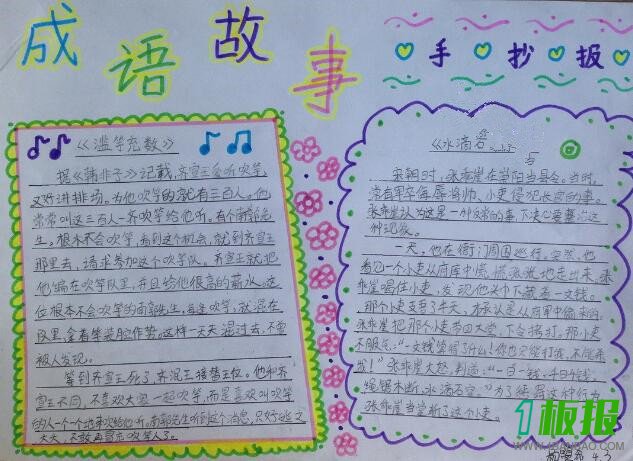 成语故事
手抄报
《滥竽充数》
据《韩非子》记载,齐宣王爱听吹竽,
又好讲排场。为他吹竽的就有三百人。他
常常叫这三百人一齐吹竽给他听。有个南郭先
生,根本不会吹竽,看到这个机会,就到齐宣王
那里去,请求参加这个吹竽队。齐宣王就把
他编在吹竽队里,并且给他很高的薪水。这
位根本不会吹竽的南郭先生,每逢吹竽,就混在
队里,拿着竽装腔作势。这样一天天混过去,不曾
被人发现。
等到齐宣王死了,齐泯王接替王位。他和齐
宣王不同,不喜欢大家一起吹竽,而是喜欢叫吹竽
的人一个一个地来吹给他听。南郭先生听到这个消息,只好逃之
夭夭,不敢再冒充吹竽人了。
《水滴石
宋朝时,张乖崖在崇阳当县令。当时,
常有军卒侮辱将帅、小吏侵犯长官的事。
张乖崖认为这是一种反常的事,下决心要整治这
种现象。
一天,他在衙门周围巡行。突然,他
看见一个小吏从府库中慌慌张张地走出来。张
乖崖喝住小吏,发现他头巾下藏着一文钱。
那个小吏支吾了半天,才承认是从府库中偷来的。
张乖崖把那个小吏带回大堂,下令拷打。那小吏
不服气:“一文钱算得了什么!你也只能打我,不能杀
我!”张乖崖大怒,判道:“一日一钱,千日千钱,
绳锯木断,水滴石穿。”为了惩罚这种行为,
张乖崖当堂斩了这个小吏。
1板报
WWW.1BANBAO.COM